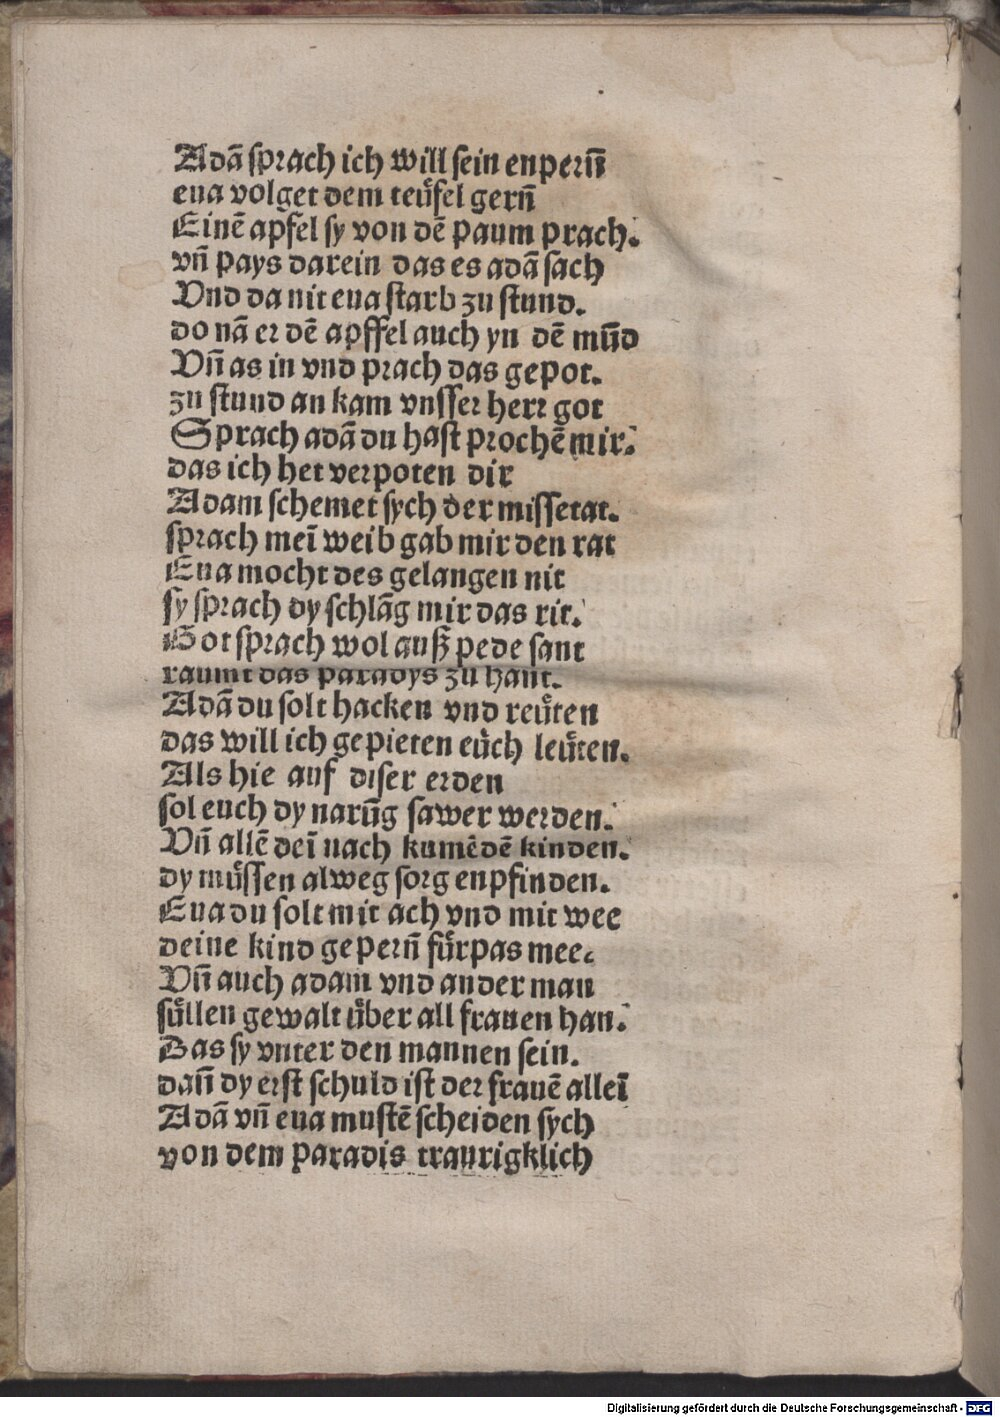 Adā sprach ich will sein enpern̄
eua volget dem teüfel gern̄
Einē apfel sy von dē paum prach.
vn̄ pays darein das es adā sach
Vnd da nit eua starb zu stund.
do nā er dē apffel auch yn dē mūd
Vn̄ as in vnd prach das gepot.
zu stund an kam vnsser herr got
Sprach adā du hast prochē mir.
das ich het verpoten dir
Adam schemet sych der missetat.
sprach meī weib gab mir den rat
Eua mocht des gelangen nit
sy sprach dy schlāg mir das rit.
Got sprach wol auß pede sant
raumt das paradys zu hant.
Adā du solt hacken vnd reüten
das will ich gepieten eüch leüten.
Als hie auf diser erden
sol euch dy narūg sawer werden.
Vn̄ allē deī nach kumēdē kinden.
dy müssen alweg sorg enpfinden.
Eua du solt mit ach vnd mit wee
deine kind gepern̄ fürpas mee.
Vn̄ auch adam vnd ander man
süllen gewalt über all frauen han.
Das sy vnter den mannen sein.
dan̄ dy erst schuld ist der frauē alleī
Adā vn̄ eua mustē scheiden sych
von dem paradis traurigklich
Digitalisierung gefördert durch die Deutsche Forschungsgemeinschaft - DFG